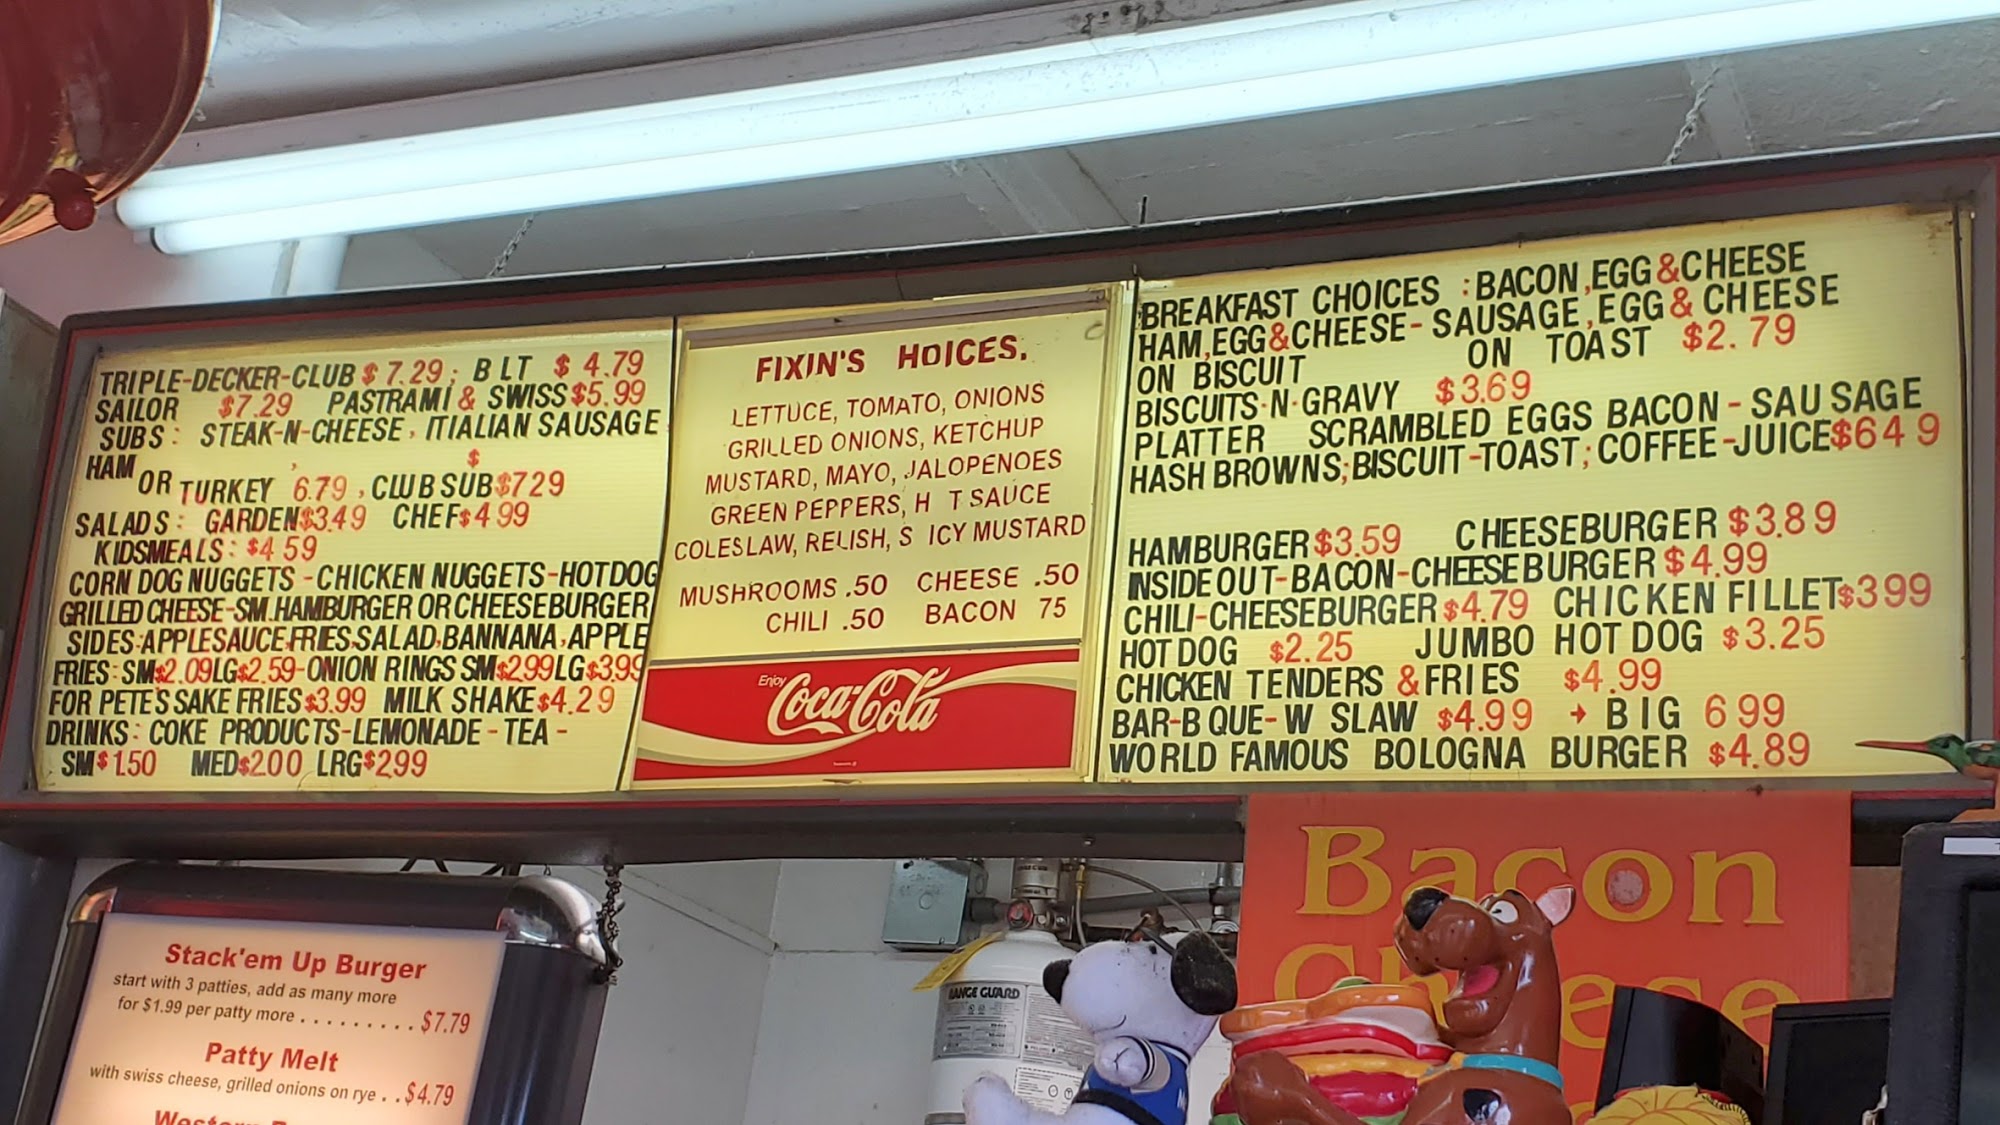 TRIPLE-DECKER-CLUB $7.29; BLT $4.79
SAILOR $7.29 PASTRAMI & SWISS $5.99
SUBS: STEAK-N-CHEESE, ITIALIAN SAUSAGE,
HAM OR TURKEY 6.79, CLUB SUB $729
SALADS: GARDEN $3.49 CHEF $499
KIDSMEALS: $459
CORN DOG NUGGETS - CHICKEN NUGGETS-HOTDOG
GRILLED CHEESE-SM.HAMBURGER OR CHEESEBURGER
SIDES:APPLESAUCE,FRIES,SALAD,BANNANA,APPLE
FRIES: SM$2.09 LG$2.59-ONION RINGS SM$299 LG$399
FOR PETE'S SAKE FRIES $3.99 MILK SHAKE $4.29
DRINKS: COKE PRODUCTS-LEMONADE-TEA-
SM $1.50 MED $200 LRG $299
FIXIN'S HOICES.
LETTUCE, TOMATO, ONIONS
GRILLED ONIONS, KETCHUP
MUSTARD, MAYO, JALOPENOES
GREEN PEPPERS, H T SAUCE
COLESLAW, RELISH, S ICY MUSTARD
MUSHROOMS .50 CHEESE .50
CHILI .50 BACON 75
Enjoy
Coca-Cola
BREAKFAST CHOICES : BACON,EGG & CHEESE
HAM,EGG & CHEESE- SAUSAGE,EGG & CHEESE
ON BISCUIT ON TOAST $2.79
BISCUITS-N-GRAVY $3.69
PLATTER SCRAMBLED EGGS BACON-SAUSAGE
HASH BROWNS;BISCUIT-TOAST;COFFEE-JUICE $649
HAMBURGER $3.59 CHEESEBURGER $3.89
INSIDE OUT-BACON-CHEESEBURGER $4.99
CHILI-CHEESEBURGER $4.79 CHICKEN FILLET $399
HOT DOG $2.25 JUMBO HOT DOG $3.25
CHICKEN TENDERS & FRIES $4.99
BAR-B QUE-W SLAW $4.99 → BIG 699
WORLD FAMOUS BOLOGNA BURGER $4.89
Stack'em Up Burger
start with 3 patties, add as many more
for $1.99 per patty more . . . . . . . . . $7.79
Patty Melt
with swiss cheese, grilled onions on rye . . $4.79
Western
Bacon
Cheese
RANGE GUARD